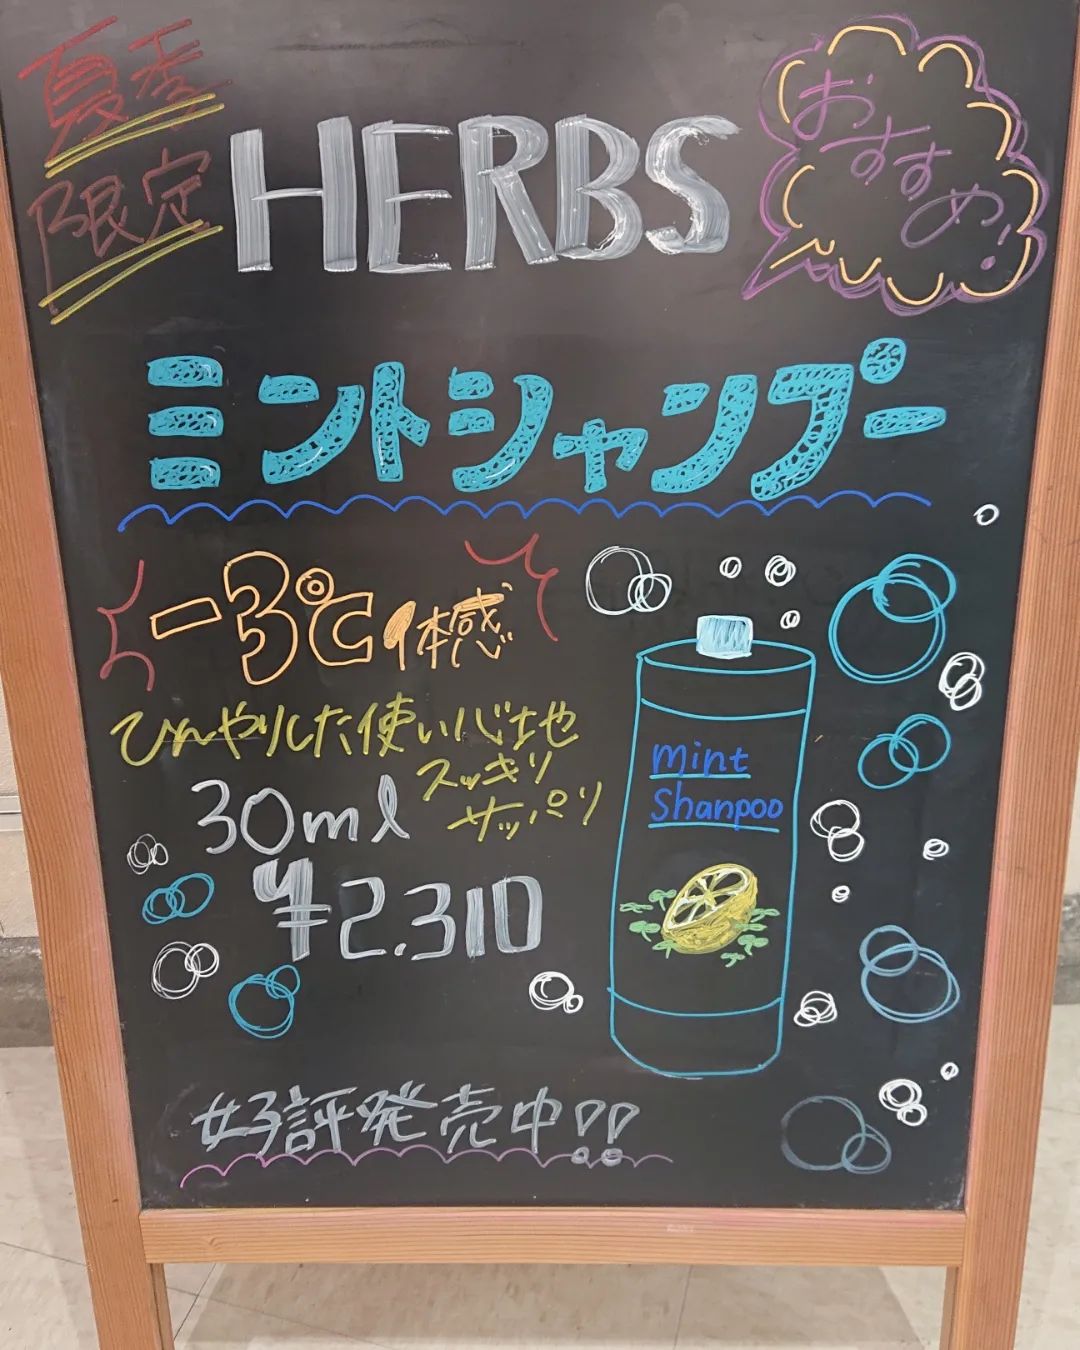 夏季
限定
HERBS
おすすめ!
ミントシャンプー
-3℃体感
ひんやりした使い心地
スッキリ
サッパリ
30ml
¥2.310
mint
Shanpoo
好評発売中!!